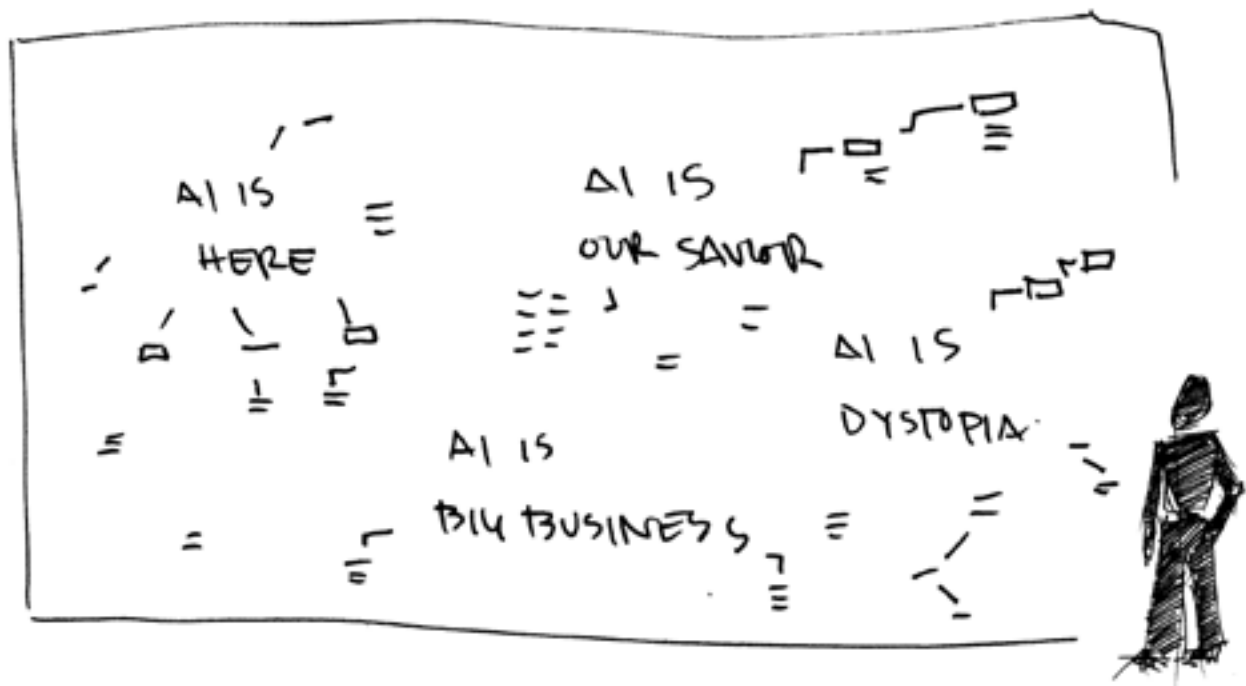 AI IS
HERE
AI IS
OUR SAVIOR
AI IS
DYSTOPIA.
AI IS
BIG BUSINESS